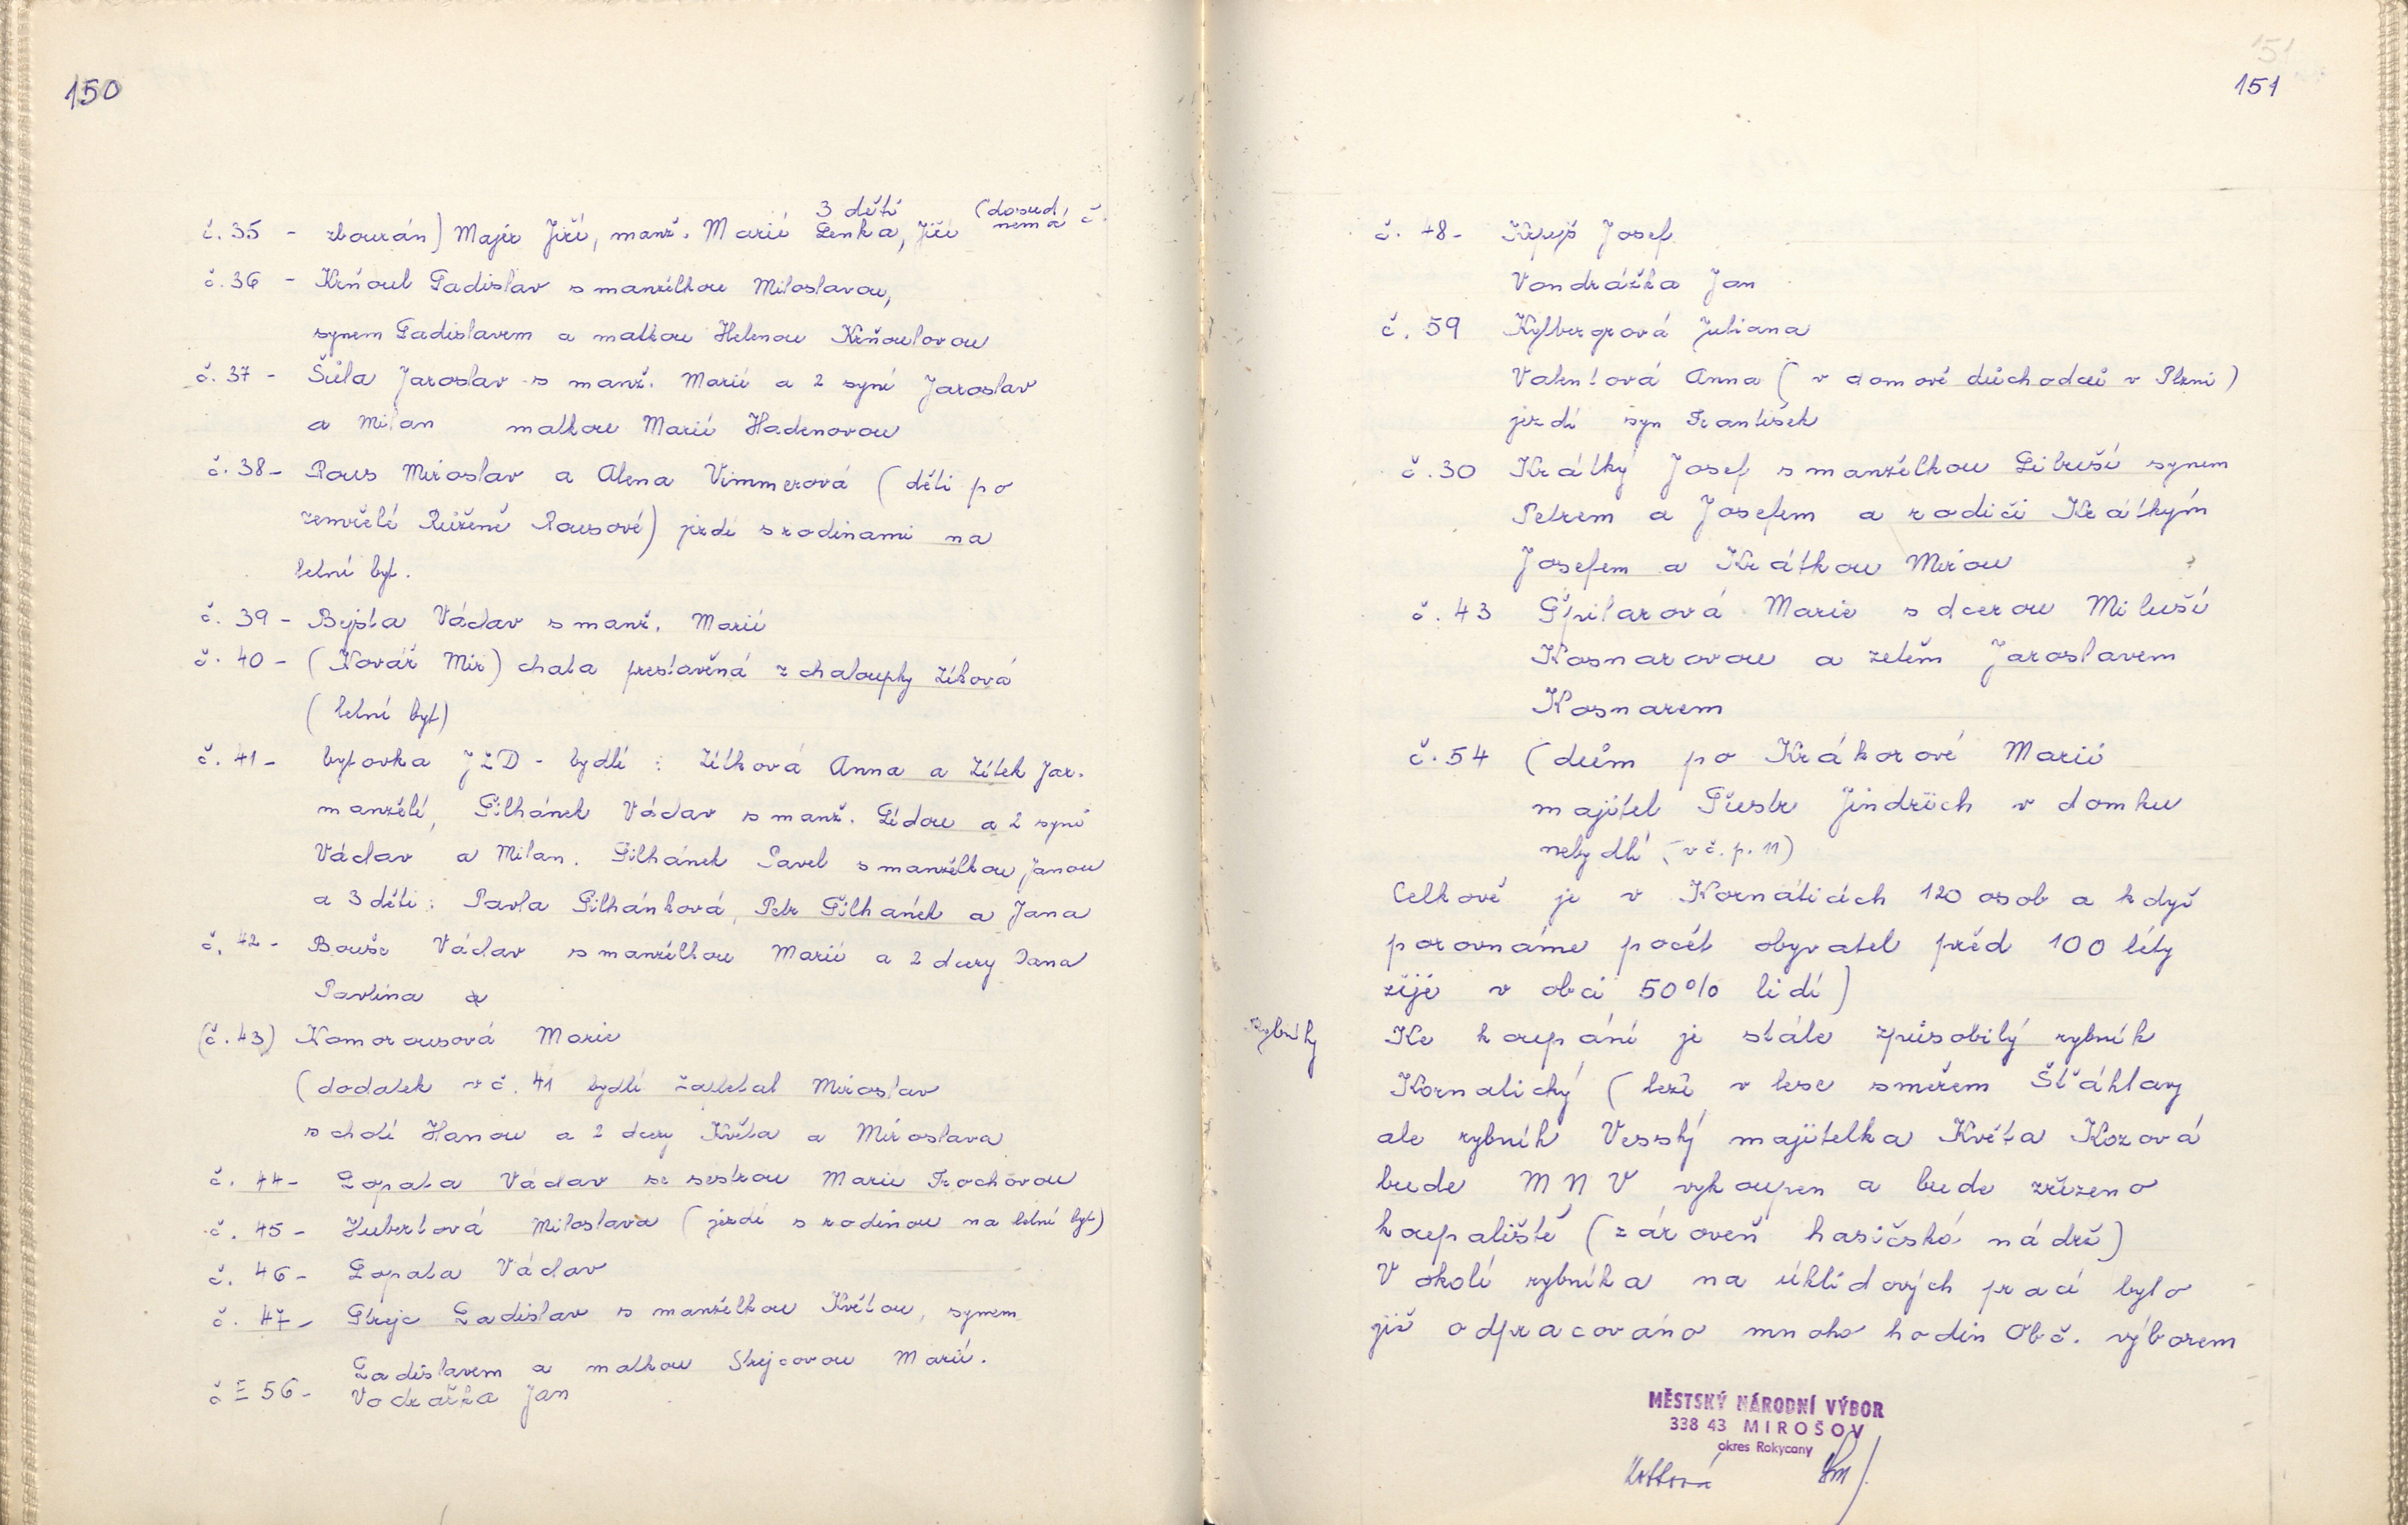 150
3 dětí (dosud
č. 35 - zbourán) Majer Jiří, manž. Marií Lenka, Jiří nemá č.
č. 36 - Krňoul Ladislav s manželkou Miloslavou,
synem Ladislavem a matkou Helenou Krňoulovou
č. 37 - Šůla Jaroslav s manž. Marií a 2 syni Jaroslav
a Milan matkou Marií Hadenovou
č. 38 - Rous Miroslav a Alena Vimmerová (děti po
zemřelé Růženě Rousové) jezdí s rodinami na
letní byt.
č. 39 - Bejsta Václav s manž. Marií
č. 40 - (Kovář Mir) chata prestavěná z chaloupky Zíková
(letní byt)
č. 41 - bytovka JZD - bydlí : Zítková Anna a Zítek Jar.
manželé, Šilhánek Václav s manž. Lídou a 2 syni
Václav a Milan. Šilhánek Pavel s manželkou Janou
a 3 děti : Pavla Šilhánková, Petr Šilhánek a Jana
č. 42 - Bouše Václav s manželkou Marií a 2 dcery Dana
Pavlína a
(č. 43) Komorousová Marie
(dodatek v č. 41 bydlí Miroslav
s chotí Hanou a 2 dcery Květa a Miroslava
č. 44 - Lopata Václav se sestrou Marií Frochovou
č. 45 - Hubertová Miloslava (jezdí s rodinou na letní byt)
č. 46 - Lopata Václav
č. 47 - Strejc Ladislav s manželkou Květou, synem
Ladislavem a matkou Strejcovou Marií.
č 56 - Vodražka Jan
151
151
č. 48 - Josef
Vondrážka Jan
č. 59 Kylbergrová Juliana
Valentová Anna (v domově důchodců v Plzni)
jezdí syn František
č. 30 Krátký Josef s manželkou Libuší synem
Petrem a Josefem a rodiči Krátkým
Josefem a Krátkou Mirou
č. 43 Špilarová Marie s dcerou Miluší
Kosnarovou a zetěm Jaroslavem
Kosnarem
č. 54 (dům po Krákorové Marii
majitel Jindřich v domku
nebydlí (v č. p. 11)
Celkově je v Kornaticích 120 osob a když
porovnáme počet obyvatel před 100 léty
žije v obci 50% lidí)
Rybníky
Ke koupání je stále způsobilý rybník
Kornatický (leží v lese směrem Šťáhlavy
ale rybník Vesský majitelka Květa Kozová
bude MNV vykoupen a bude zřízeno
koupaliště (zároveň hasičská nádrž)
V okolí rybníka na úklidových prací bylo
již odpracováno mnoho hodin Obč. výborem
MĚSTSKÝ NÁRODNÍ VÝBOR
338 43 MIROŠOV
okres Rokycany